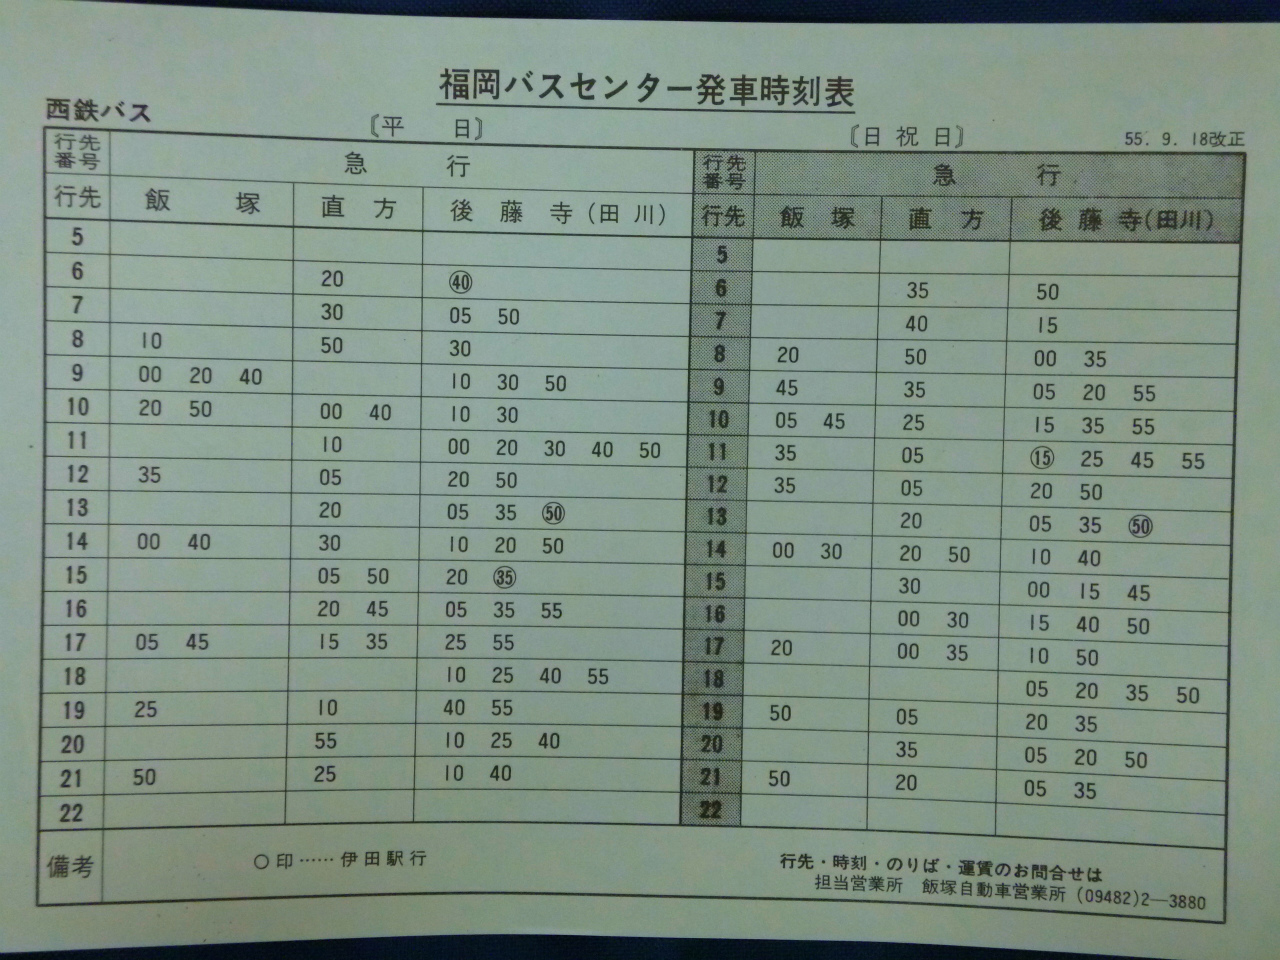 福岡バスセンター発車時刻表
西鉄バス
〔平 日〕 〔日 祝 日〕 55. 9. 18改正
行先番号 急 行 行先番号 急 行
行先 飯 塚 直 方 後 藤 寺(田 川) 行先 飯 塚 直 方 後 藤 寺(田川)
5 5
6 20 ㊵ 6 35 50
7 30 05 50 7 40 15
8 10 50 30 8 20 50 00 35
9 00 20 40 10 30 50 9 45 35 05 20 55
10 20 50 00 40 10 30 10 05 45 25 15 35 55
11 10 00 20 30 40 50 11 35 05 ⑮ 25 45 55
12 35 05 20 50 12 35 05 20 50
13 20 05 35 ㊿ 13 20 05 35 ㊿
14 00 40 30 10 20 50 14 00 30 20 50 10 40
15 05 50 20 ㉟ 15 30 00 15 45
16 20 45 05 35 55 16 00 30 15 40 50
17 05 45 15 35 25 55 17 20 00 35 10 50
18 10 25 40 55 18 05 20 35 50
19 25 10 40 55 19 50 05 20 35
20 55 10 25 40 20 35 05 20 50
21 50 25 10 40 21 50 20 05 35
22 22
備考 ○印……伊田駅行
行先・時刻・のりば・運賃のお問合せは
担当営業所 飯塚自動車営業所 (09482)2―3880